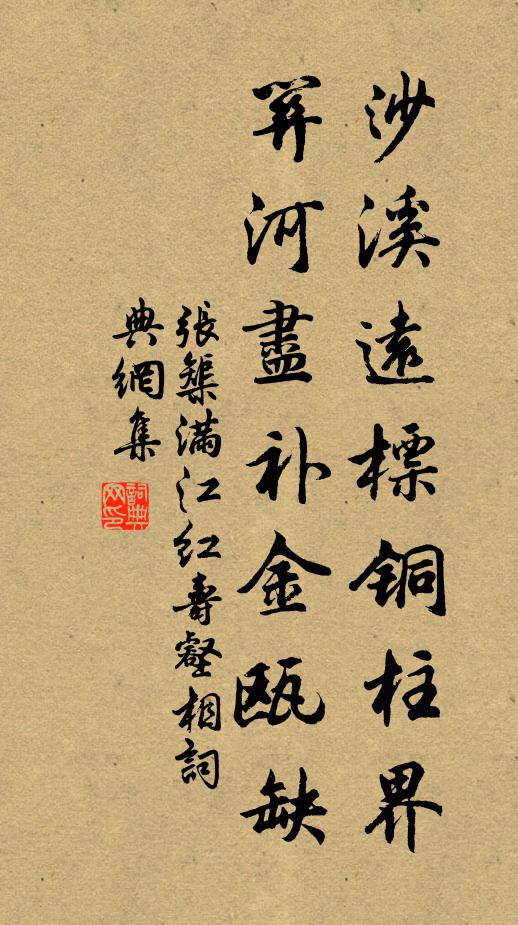 沙溪遠標銅柱界
筭河盡補金瓯缺
張榘滿江紅壽壑相詞
典網集
詞典
网印